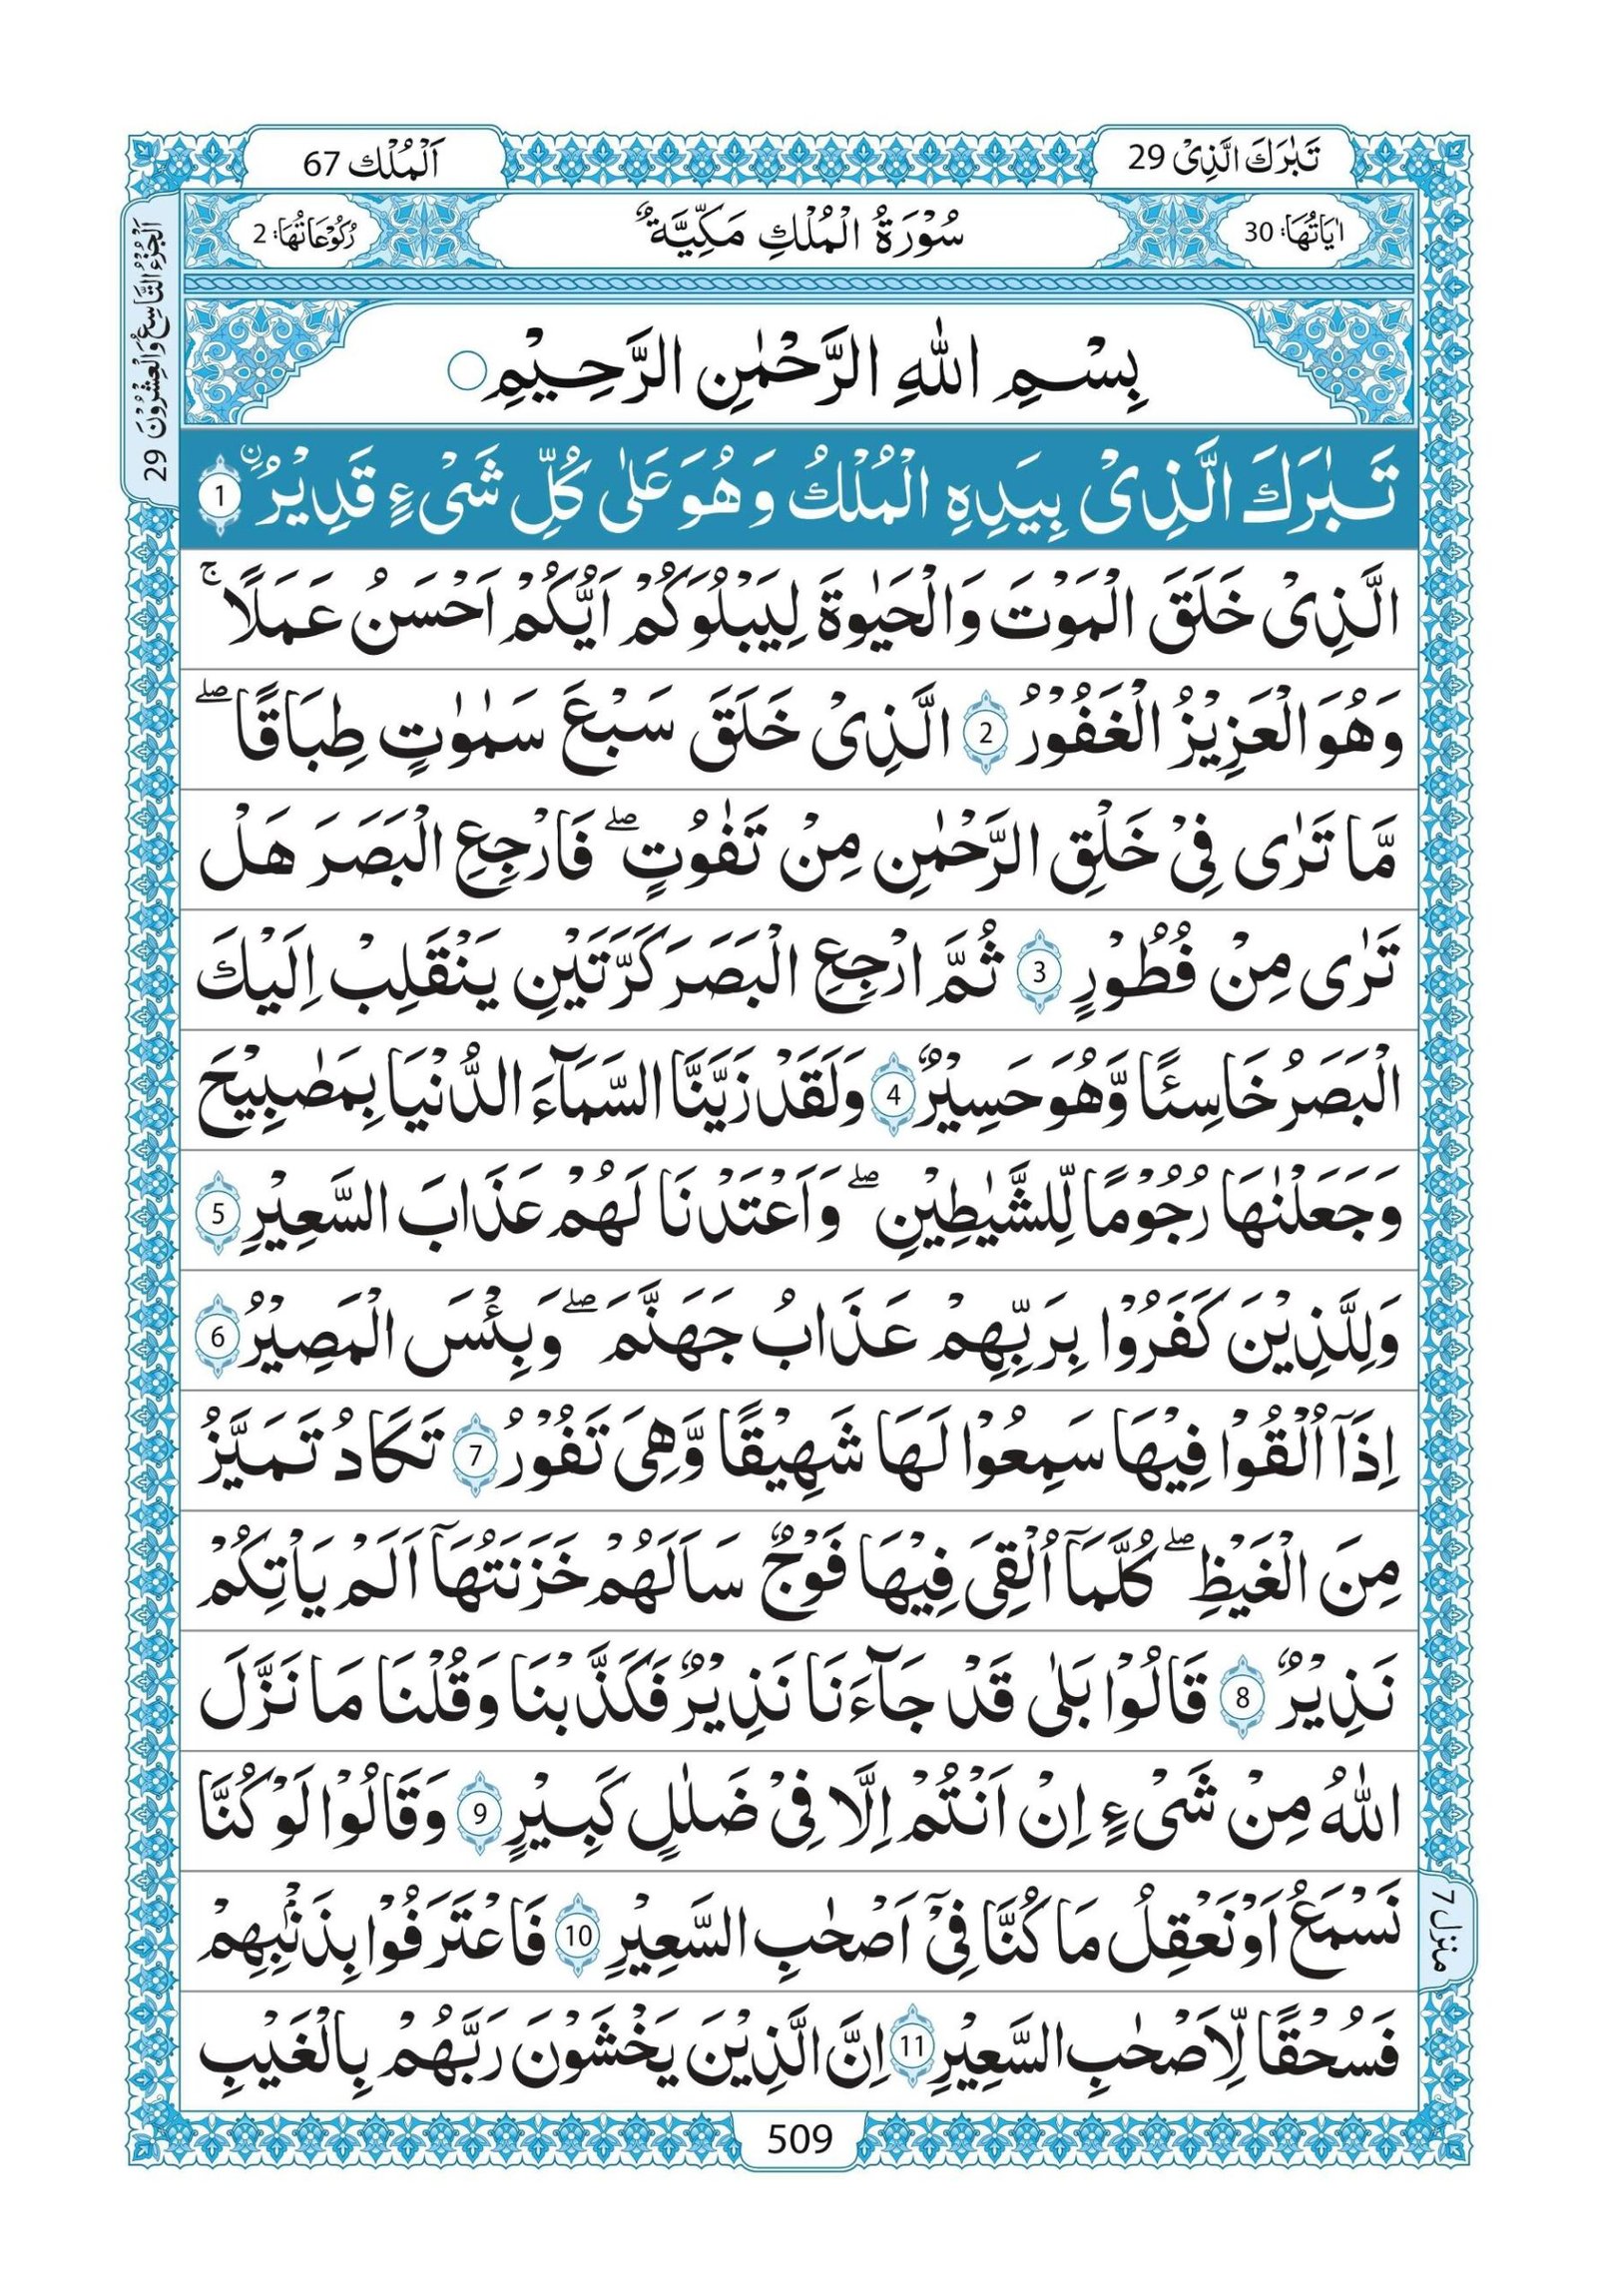 تَبٰرَكَ الَّذِىْ 29
اَلْمُلْك 67
اٰيَاتُهَا: 30
سُوْرَةُ الْمُلْكِ مَكِّيَّةٌ
رُكُوْعَاتُهَا: 2
اَلْجُزْءُ التَّاسِعُ وَالْعِشْرُوْنَ 29
بِسْمِ اللّٰهِ الرَّحْمٰنِ الرَّحِيْمِ
تَبٰرَكَ الَّذِىْ بِيَدِهِ الْمُلْكُ وَهُوَ عَلٰى كُلِّ شَىْءٍ قَدِيْرُ ۨ 1
الَّذِىْ خَلَقَ الْمَوْتَ وَالْحَيٰوةَ لِيَبْلُوَكُمْ اَيُّكُمْ اَحْسَنُ عَمَلًا ۚ
وَهُوَ الْعَزِيْزُ الْغَفُوْرُ 2 الَّذِىْ خَلَقَ سَبْعَ سَمٰوٰتٍ طِبَاقًا ۖ
مَّا تَرٰى فِىْ خَلْقِ الرَّحْمٰنِ مِنْ تَفٰوُتٍ ۖ فَارْجِعِ الْبَصَرَ هَلْ
تَرٰى مِنْ فُطُوْرٍ 3 ثُمَّ ارْجِعِ الْبَصَرَ كَرَّتَيْنِ يَنْقَلِبْ اِلَيْكَ
الْبَصَرُ خَاسِئًا وَّهُوَ حَسِيْرٌ 4 وَلَقَدْ زَيَّنَّا السَّمَآءَ الدُّنْيَا بِمَصٰبِيْحَ
وَجَعَلْنٰهَا رُجُوْمًا لِّلشَّيٰطِيْنِ ۖ وَاَعْتَدْنَا لَهُمْ عَذَابَ السَّعِيْرِ 5
وَلِلَّذِيْنَ كَفَرُوْا بِرَبِّهِمْ عَذَابُ جَهَنَّمَ ۖ وَبِئْسَ الْمَصِيْرُ 6
اِذَآ اُلْقُوْا فِيْهَا سَمِعُوْا لَهَا شَهِيْقًا وَّهِىَ تَفُوْرُ 7 تَكَادُ تَمَيَّزُ
مِنَ الْغَيْظِ ۖ كُلَّمَآ اُلْقِىَ فِيْهَا فَوْجٌ سَاَلَهُمْ خَزَنَتُهَآ اَلَمْ يَاْتِكُمْ
نَذِيْرٌ 8 قَالُوْا بَلٰى قَدْ جَآءَنَا نَذِيْرٌ فَكَذَّبْنَا وَقُلْنَا مَا نَزَّلَ
اللّٰهُ مِنْ شَىْءٍ اِنْ اَنْتُمْ اِلَّا فِىْ ضَلٰلٍ كَبِيْرٍ 9 وَقَالُوْا لَوْ كُنَّا
نَسْمَعُ اَوْ نَعْقِلُ مَا كُنَّا فِىْٓ اَصْحٰبِ السَّعِيْرِ 10 فَاعْتَرَفُوْا بِذَنْۢبِهِمْ
فَسُحْقًا لِّاَصْحٰبِ السَّعِيْرِ 11 اِنَّ الَّذِيْنَ يَخْشَوْنَ رَبَّهُمْ بِالْغَيْبِ
منزل 7
509